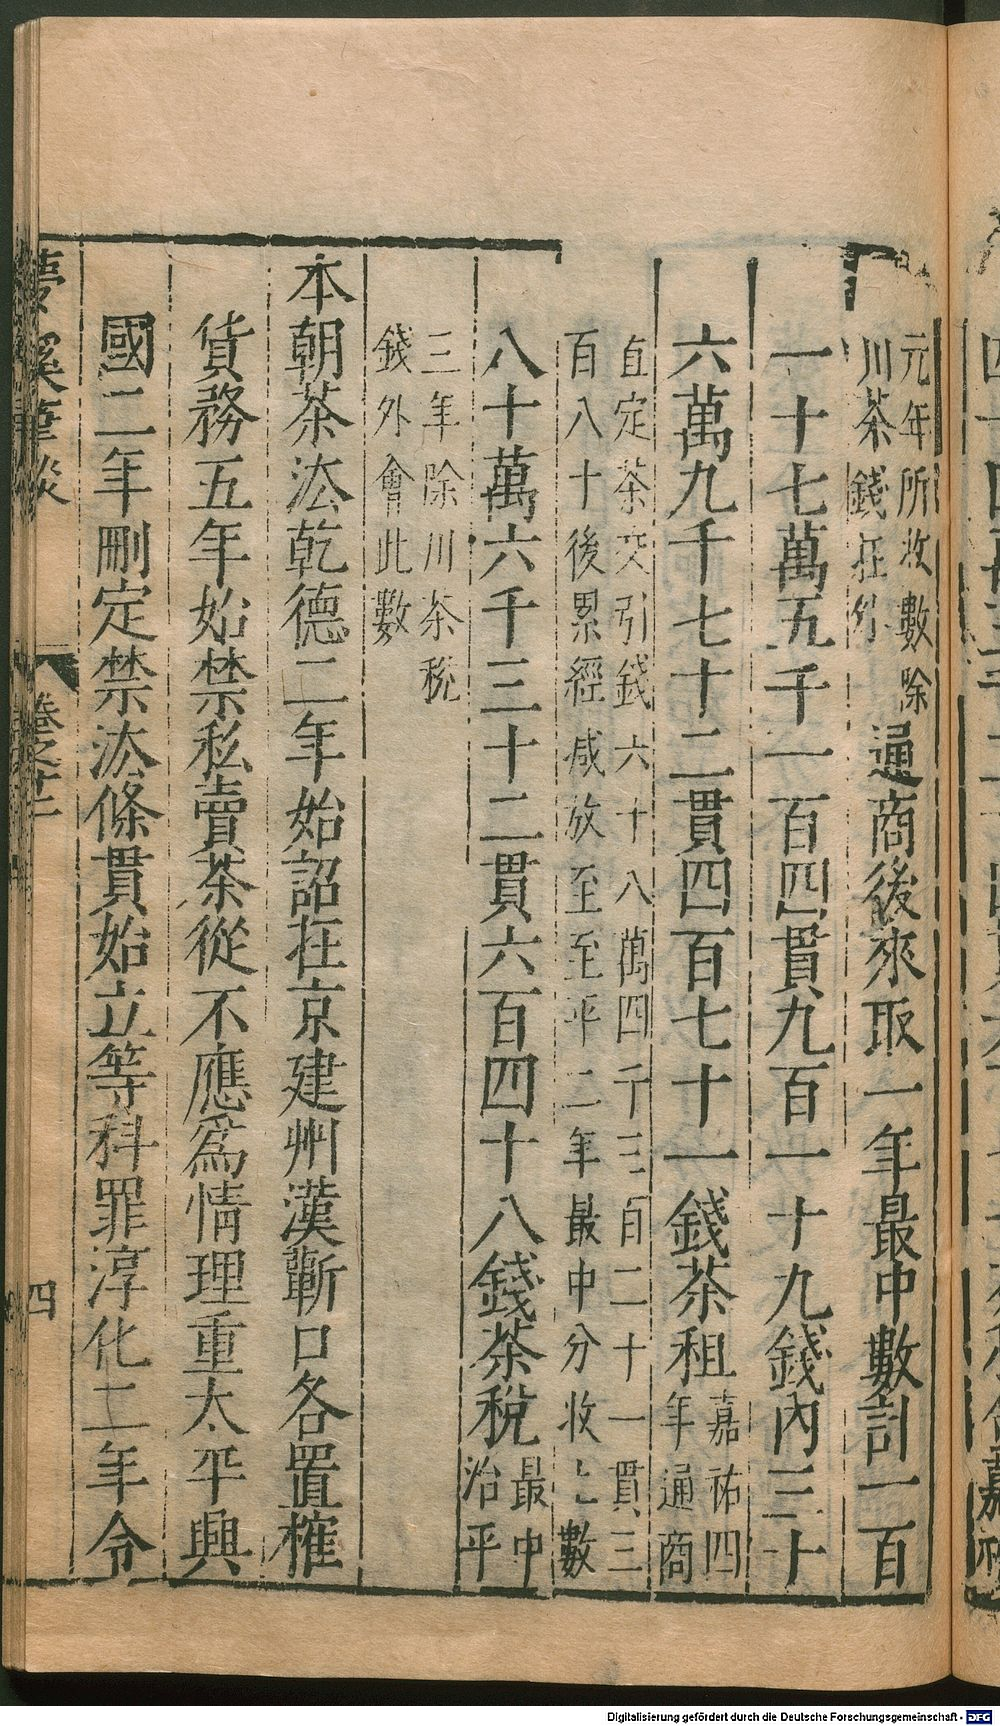 元年所收數除
川茶錢在外
通商後來取一年最中數計一百
一十七萬五千一百四貫九百一十九錢內三十
六萬九千七十二貫四百七十一錢茶租
嘉祐四
年通商
直定茶交引錢六十八萬四千三百二十一貫三
百八十後累經咸放至至平二年最中分收上數
八十萬六千三十二貫六百四十八錢茶稅
最中
治平
三年除川茶稅
錢外會此數
本朝茶法乾德二年始詔在京建州漢蘄口各置榷
貨務五年始禁私賣茶從不應爲情理重太平興
國二年刪定禁法條貫始立等科罪淳化二年令
夢溪筆談
卷之十二
四
Digitalisierung gefördert durch die Deutsche Forschungsgemeinschaft - DFG